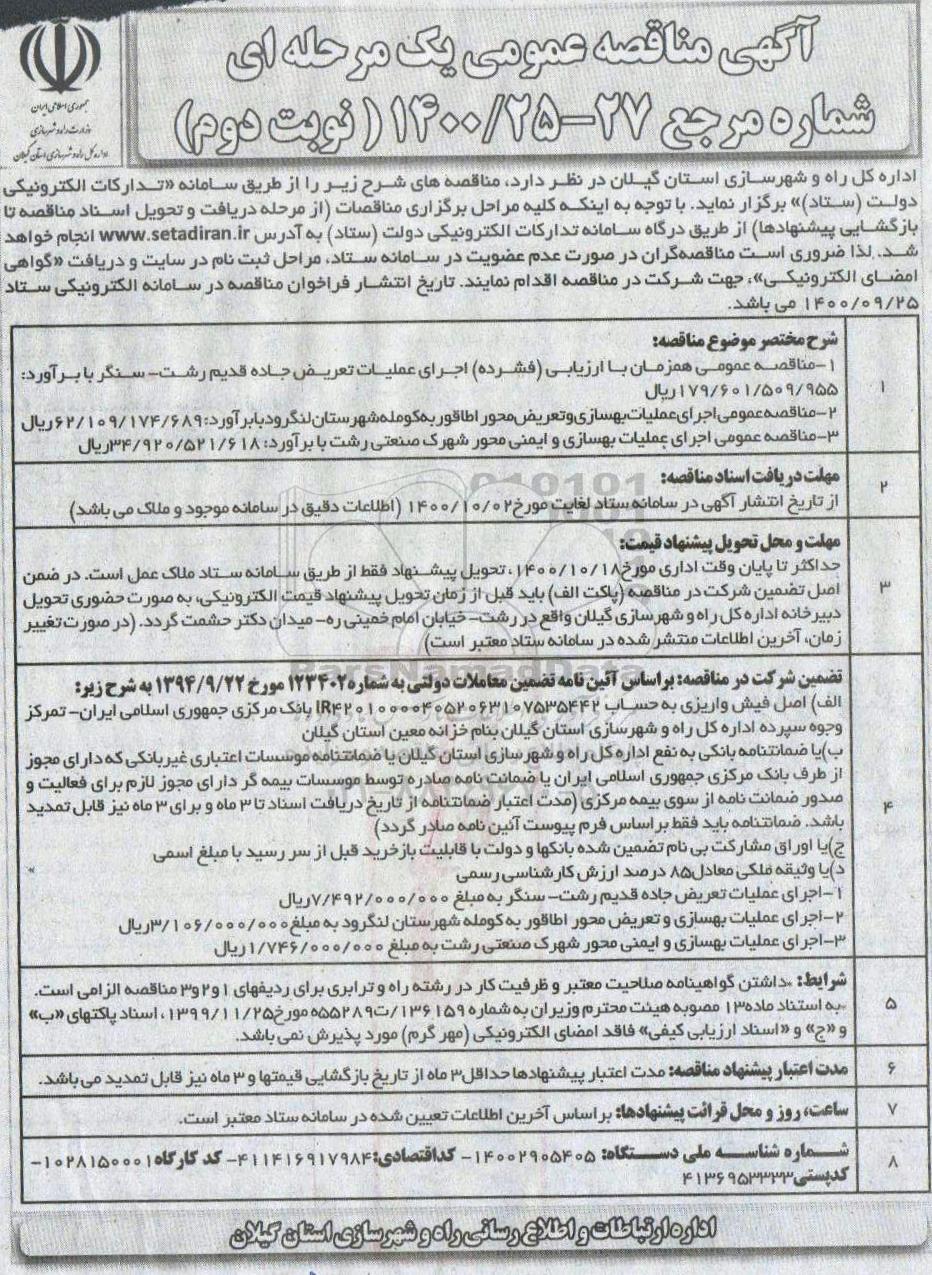 آگهی مناقصه عمومی یک مرحله ای
شماره مرجع ۲۷-۱۴۰۰/۲۵ (نوبت دوم)
جمهوری اسلامی ایران
وزارت راه و شهرسازی
اداره کل راه و شهرسازی استان گیلان
اداره کل راه و شهرسازی استان گیلان در نظر دارد، مناقصه های شرح زیر را از طریق سامانه «تدارکات الکترونیکی
دولت (ستاد)» برگزار نماید. با توجه به اینکه کلیه مراحل برگزاری مناقصات (از مرحله دریافت و تحویل اسناد مناقصه تا
بازگشایی پیشنهادها) از طریق درگاه سامانه تدارکات الکترونیکی دولت (ستاد) به آدرس www.setadiran.ir انجام خواهد
شد. لذا ضروری است مناقصه‌گران در صورت عدم عضویت در سامانه ستاد، مراحل ثبت نام در سایت و دریافت «گواهی
امضای الکترونیکی»، جهت شرکت در مناقصه اقدام نمایند. تاریخ انتشار فراخوان مناقصه در سامانه الکترونیکی ستاد
۱۴۰۰/۰۹/۲۵ می باشد.
۱
شرح مختصر موضوع مناقصه:
۱-مناقصه عمومی همزمان با ارزیابی (فشرده) اجرای عملیات تعریض جاده قدیم رشت- سنگر با برآورد:
۱۷۹/۶۰۱/۵۰۹/۹۵۵ریال
۲-مناقصه عمومی اجرای عملیات بهسازی و تعریض محور اطاقور به کومله شهرستان لنگرود با برآورد: ۶۲/۱۰۹/۱۷۴/۶۸۹ریال
۳-مناقصه عمومی اجرای عملیات بهسازی و ایمنی محور شهرک صنعتی رشت با برآورد: ۳۴/۹۲۰/۵۲۱/۶۱۸ریال
۲
مهلت دریافت اسناد مناقصه:
از تاریخ انتشار آگهی در سامانه ستاد لغایت مورخ۱۴۰۰/۱۰/۰۲ (اطلاعات دقیق در سامانه موجود و ملاک می باشد)
۳
مهلت و محل تحویل پیشنهاد قیمت:
حداکثر تا پایان وقت اداری مورخ۱۴۰۰/۱۰/۱۸، تحویل پیشنهاد فقط از طریق سامانه ستاد ملاک عمل است. در ضمن
اصل تضمین شرکت در مناقصه (پاکت الف) باید قبل از زمان تحویل پیشنهاد قیمت الکترونیکی، به صورت حضوری تحویل
دبیرخانه اداره کل راه و شهرسازی گیلان واقع در رشت- خیابان امام خمینی ره- میدان دکتر حشمت گردد. (در صورت تغییر
زمان، آخرین اطلاعات منتشر شده در سامانه ستاد معتبر است)
ParsNamadData
۴
تضمین شرکت در مناقصه: براساس آئین نامه تضمین معاملات دولتی به شماره ۱۲۳۴۰۲ مورخ ۱۳۹۴/۹/۲۲ به شرح زیر:
الف) اصل فیش واریزی به حساب IR۴۲۰۱۰۰۰۰۴۰۵۲۰۶۳۱۰۷۵۳۵۴۴۲ بانک مرکزی جمهوری اسلامی ایران- تمرکز
وجوه سپرده اداره کل راه و شهرسازی استان گیلان بنام خزانه معین استان گیلان
ب)یا ضمانتنامه بانکی به نفع اداره کل راه و شهرسازی استان گیلان یا ضمانتنامه موسسات اعتباری غیربانکی که دارای مجوز
از طرف بانک مرکزی جمهوری اسلامی ایران یا ضمانت نامه صادره توسط موسسات بیمه گر دارای مجوز لازم برای فعالیت و
صدور ضمانت نامه از سوی بیمه مرکزی (مدت اعتبار ضمانتنامه از تاریخ دریافت اسناد تا ۳ ماه و برای ۳ ماه نیز قابل تمدید
باشد. ضمانتنامه باید فقط براساس فرم پیوست آئین نامه صادر گردد)
ج)یا اوراق مشارکت بی نام تضمین شده بانکها و دولت با قابلیت بازخرید قبل از سر رسید با مبلغ اسمی
د)یا وثیقه ملکی معادل۸۵ درصد ارزش کارشناسی رسمی
۱-اجرای عملیات تعریض جاده قدیم رشت- سنگر به مبلغ ۷/۴۹۲/۰۰۰/۰۰۰ریال
۲-اجرای عملیات بهسازی و تعریض محور اطاقور به کومله شهرستان لنگرود به مبلغ۳/۱۰۶/۰۰۰/۰۰۰ریال
۳-اجرای عملیات بهسازی و ایمنی محور شهرک صنعتی رشت به مبلغ ۱/۷۴۶/۰۰۰/۰۰۰ریال
۵
شرایط: -داشتن گواهینامه صلاحیت معتبر و ظرفیت کار در رشته راه و ترابری برای ردیفهای ۱و۲و۳ مناقصه الزامی است.
-به استناد ماده۱۳ مصوبه هیئت محترم وزیران به شماره ۱۳۶۱۵۹/ت۵۵۲۸۹ه مورخ۱۳۹۹/۱۱/۲۵، اسناد پاکتهای «ب»
و «ج» و «اسناد ارزیابی کیفی» فاقد امضای الکترونیکی (مهر گرم) مورد پذیرش نمی باشد.
۶
مدت اعتبار پیشنهاد مناقصه: مدت اعتبار پیشنهادها حداقل۳ ماه از تاریخ بازگشایی قیمتها و ۳ ماه نیز قابل تمدید می باشد.
۷
ساعت، روز و محل قرائت پیشنهادها: براساس آخرین اطلاعات تعیین شده در سامانه ستاد معتبر است.
۸
شماره شناسه ملی دستگاه: ۱۴۰۰۲۹۰۵۴۰۵- کداقتصادی:۴۱۱۴۱۶۹۱۷۹۸۴- کد کارگاه۱۰۲۸۱۵۰۰۰۱-
کدپستی۴۱۳۶۹۵۳۳۳۳
اداره ارتباطات و اطلاع رسانی راه و شهرسازی استان گیلان